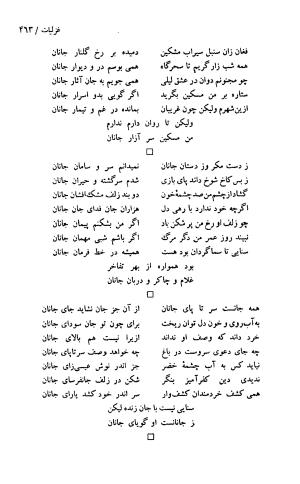 غزلیات / ۴۶۳
فغان زان سنبل سیراب مشکین دمیده بر رخ گلنار جانان
همه شب زار گریم تا سحرگاه همی بوسم در و دیوار جانان
چو مجنونم دوان در عشق لیلی همی جویم به جان آثار جانان
ستاره بر من مسکین بگرید اگر گویی بدو اسرار جانان
ازین شهرم ولیکن چون غریبان بمانده در غم و تیمار جانان
ولیکن تا روان دارم ندارم
من مسکین سر آزار جانان
ز دست مکر وز دستان جانان نمیدانم سر و سامان جانان
ز بس کاخ شوخ داند پای بازی شدم سرگشته و حیران جانان
گشاد از چشم من صد چشمه خون دو بند زلف مشک‌افشان جانان
اگرچه خود ندارد با رهی دل هزاران جان فدای جان جانان
چو زلف او رخ من پر شکن باد اگر من بشکنم پیمان جانان
نبیند روز عمر من دگر مرگ اگر باشم شبی مهمان جانان
سنایی تا سماگردان بود هست همیشه در خط فرمان جانان
بود همواره از بهر تفاخر
غلام و چاکر و دربان جانان
همه جانست سر تا پای جانان از آن جز جان نشاید جای جانان
به آب‌روی و خون دل توان ریخت برای چون تو جان سودای جانان
خرد داند که وصف او نداند ازیرا نیست هم بالای جانان
چه جای دعوی سروست در باغ چه خواهد وصف سرتاپای جانان
نیابد کس به آب چشمهٔ خضر جز اندر نوش عیسی‌زای جانان
ندیدی دین کفرآمیز بنگر شکن در زلف جانفرسای جانان
همی کشف خردمندان کشف‌وار سر اندر خود کشد یارای جانان
سنایی نیست با جان زنده لیکن
ز جانانست او گویای جانان